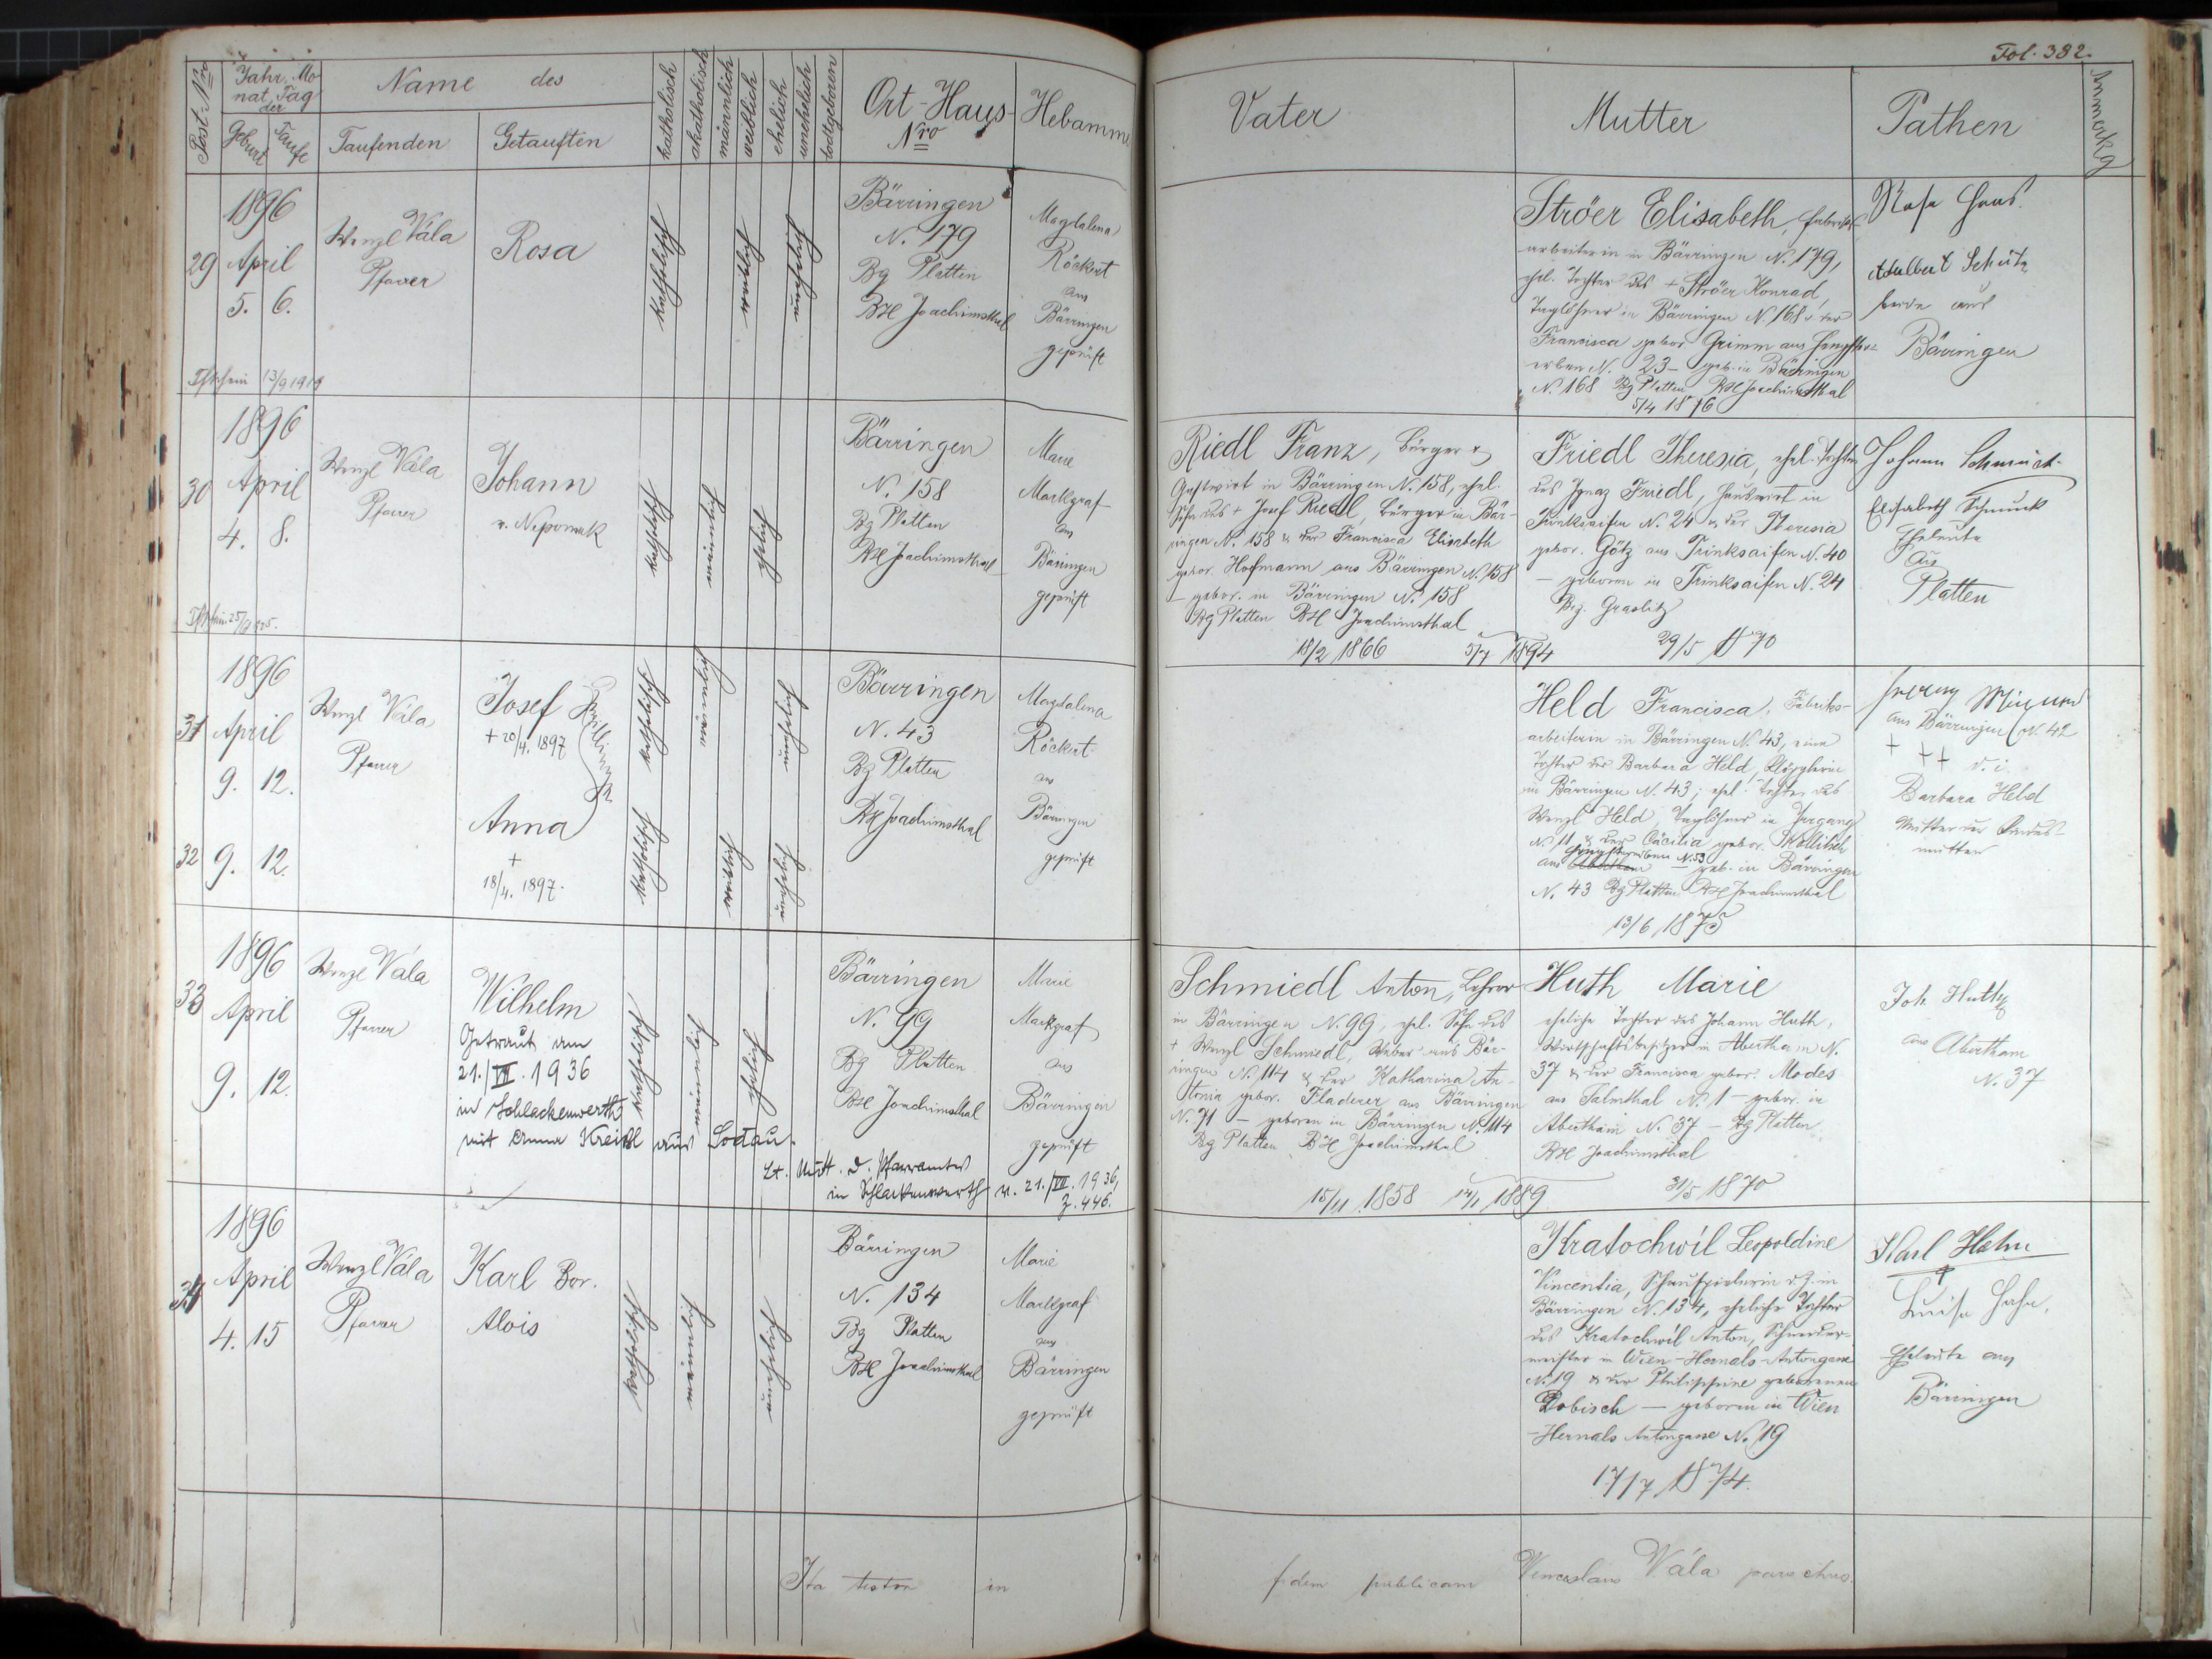 Fol. 382.
Post-Nro
Jahr, Mo-
nat, Tag
der
Geburt
Taufe
Name des
Taufenden
Getauften
katholisch
akatholisch
männlich
weiblich
ehelich
unehelich
todtgeboren
Ort-Haus-
Nro
Hebamm.
Vater
Mutter
Pathen
Anmerkg
29
1896
April
5. 6.
Wenzl Vála
Pfarrer
Rosa
katholisch
weiblich
unehelich
Bärringen
N. 179
Bg Platten
BH Joachimsthal
Magdalena
Röckert
aus
Bärringen
geprüft
Ströer Elisabeth, Fabriks-
arbeiterin in Bärringen N. 179,
ehel. Tochter des + Ströer Konrad,
Taglöhner in Bärringen N. 168 u. der
Francisca gebor. Grimm aus Hengster-
erben N. 23 – geb. in Bärringen
N. 168 Bg Platten BH Joachimsthal
5/4 1876
Rosa
Adalbert Schütz
beide aus
Bärringen
13/9 1919
30
1896
April
4. 8.
Wenzl Vála
Pfarrer
Johann
v. Nepomuk
katholisch
männlich
ehelich
Bärringen
N. 158
Bg Platten
BH Joachimsthal
Marie
Markgraf
aus
Bäringen
geprüft
Riedl Franz, Bürger &
Gastwirt in Bärringen N. 158, ehel.
Sohn des + Josef Riedl, Bürger in Bär-
ringen N. 158 & der Francisca Elisabeth
gebor. Hofmann aus Bärringen N. 158
– gebor. in Bärringen N. 158
Bg Platten BH Joachimsthal
18/2 1866 5/7 1894
Friedl Theresia, ehel. Tochter
des Ignaz Friedl, Hauswirt in
Trinksaifen N. 24 & der Theresia
gebor. Götz aus Trinksaifen N. 40
– geboren in Trinksaifen N. 24
Bez. Graslitz
29/5 1870
Johann Schmuck
Elisabeth Schmuck
Eheleute
aus
Platten
31
1896
April
9. 12.
Wenzl Vála
Pfarrer
Josef
+ 20/4. 1897
Zwillinge
katholisch
männlich
unehelich
Bärringen
N. 43
Bg Platten
BH Joachimsthal
Magdalena
Röckert
aus
Bärringen
geprüft
32
9. 12.
Anna
+
18/4. 1897.
katholisch
weiblich
unehelich
Held Francisca, Fabriks-
arbeiterin in Bärringen N. 43, eine
Tochter der Barbara Held, Klöpplerin
in Bärringen N. 43; ehel. Tochter des
Wenzl Held, Taglöhner in Irrgang
N. 11 & der Cäcilia gebor.
Hengstererben N. 53
aus Abertham – geb. in Bärringen
N. 43 Bg Platten BH Joachimsthal
13/6 1875
aus Bärringen N. 42
+ ++ d. i.
Barbara Held
Mutter der Kindes-
mutter
33
1896
April
9. 12.
Wenzl Vála
Pfarrer
Wilhelm
Getraut am
21./VII. 1936
in Schlackenwerth
mit Anna Kreißl aus Sodau.
Lt. Mitt. d. Pfarramtes
in Schlackenwerth v. 21./VII. 1936,
Z. 446.
katholisch
männlich
ehelich
Bärringen
N. 99
Bg Platten
BH Joachimsthal
Marie
Markgraf
aus
Bärringen
geprüft
Schmiedl Anton, Lehrer
in Bärringen N. 99, ehel. Sohn des
+ Wenzl Schmiedl, Weber aus Bär-
ringen N. 114 & der Katharina An-
tonia gebor. Fladerer aus Bärringen
N. 71 – geboren in Bärringen N. 114
Bg Platten BH Joachimsthal
15/11 1858 14/1 1889
Huth Marie
eheliche Tochter des Johann Huth,
Wirtschaftsbesitzer in Abertham N.
37 & der Francisca gebor. Modes
aus Salmthal N. 1 – gebor. in
Abertham N. 37 – Bg Platten
BH Joachimsthal
31/5 1870
Joh. Huth
aus Abertham
N. 37
34
1896
April
4. 15
Wenzl Vála
Pfarrer
Karl Bor.
Alois
katholisch
männlich
unehelich
Bärringen
N. 134
Bg Platten
BH Joachimsthal
Marie
Markgraf
aus
Bärringen
geprüft
Kratochwil Leopoldine
Vincentia, Schauspielerin d. Z. in
Bärringen N. 134, eheliche Tochter
des Kratochwil Anton, Schneider-
meister in Wien-Hernals-Antongasse
N. 19 & der Philippine geborenen
Dobisch – geboren in Wien
-Hernals Antongasse N. 19
17/7 1874.
Karl Hahn
Luise Hahn,
Eheleute aus
Bärringen
Ita testor in fidem publicam Wenceslaus Vála parochus.